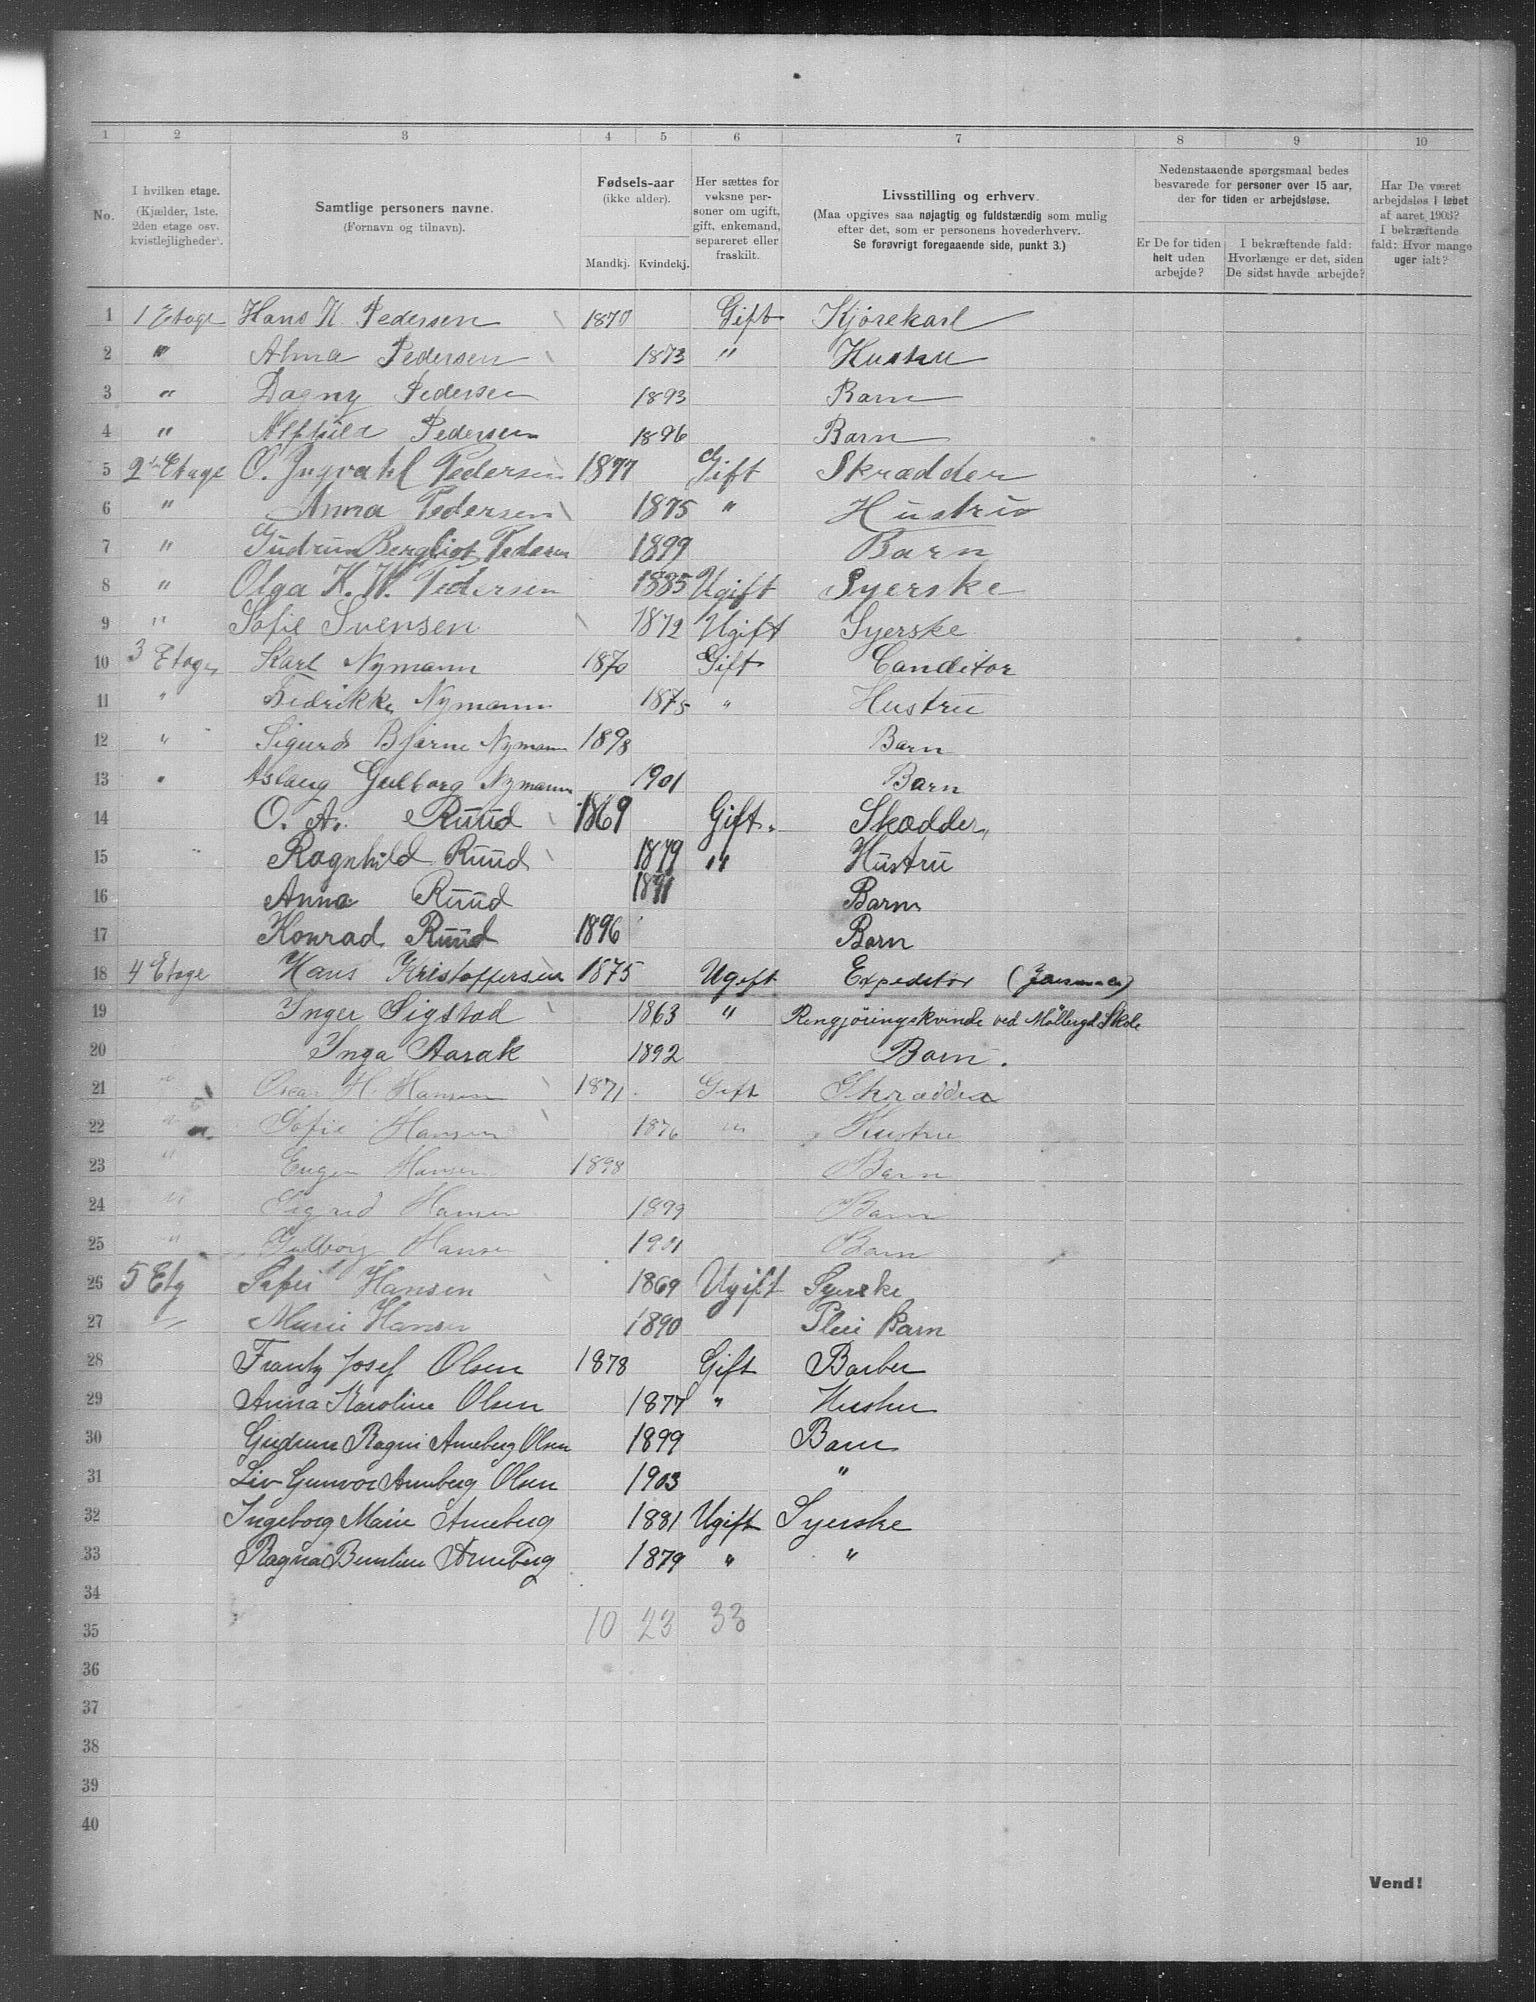 1 2 3 4 5 6 7 8 9 10
No. I hvilken etage. (Kjælder, 1ste, 2den etage osv. kvistlejligheder). Samtlige personers navne. (Fornavn og tilnavn). Fødsels-aar (ikke alder). Mandkj. Kvindekj. Her sættes for voksne personer om ugift, gift, enkemand, separeret eller fraskilt. Livsstilling og erhverv. (Maa opgives saa nøjagtig og fuldstændig som mulig efter det, som er personens hovederhverv. Se forøvrigt foregaaende side, punkt 3.) Nedenstaaende spørgsmaal bedes besvarede for personer over 15 aar, der for tiden er arbejdsløse. Er De for tiden helt uden arbejde? I bekræftende fald: Hvorlænge er det, siden De sidst havde arbejde? Har De været arbejdsløs i løbet af aaret 1903? I bekræftende fald: Hvor mange uger ialt?
1 1 Etage Hans K. Pedersen 1870 Gift Kjørekarl
2 " Alma Pedersen 1873 " Hustru
3 " Dagny Pedersen 1893 Barn
4 " Alfhild Pedersen 1896 Barn
5 2den Etage O. Ingvald Pedersen 1877 Gift Skrædder
6 " Anna Pedersen 1875 " Hustru
7 " Gudrun Bergliot Pedersen 1899 Barn
8 " Olga K. W. Pedersen 1885 Ugift Syerske
9 " Sofie Svensen 1872 Ugift Syerske
10 3 Etage Karl Nymann 1870 Gift Canditor
11 " Fedrikke Nymann 1875 " Hustru
12 " Sigurd Bjarne Nymann 1898 Barn
13 " Aslaug Gulborg Nymann 1901 Barn
14 O. A. Ruud 1869 Gift. Skædder
15 " Ragnhild Ruud 1879 " Hustru
16 Anna Ruud 1891 Barn
17 Konrad Ruud 1896 Barn
18 4 Etage Hans Kristoffersen 1875 Ugift Expeditør
19 Inger Sigstad 1863 " Rengjøringskvinde ved Møllergd. Skole
20 Inga Aarak 1892 Barn.
21 " Oscar H. Hansen 1871 Gift Skrædder
22 " Sofie Hansen 1876 " Hustru
23 " Eugen Hansen 1898 Barn
24 " Sigrid Hansen 1899 Barn
25 " Gulborg Hansen 1901 Barn
26 5 Etg Sofie Hansen 1869 Ugift Syerske
27 " Marie Hansen 1890 Pleie Barn
28 Frantz Josef Olsen 1878 Gift Barber
29 Anna Karoline Olsen 1877 " Hustru
30 Gudrun Ragni Arneberg Olsen 1899 Barn
31 Liv Gunvor Arneberg Olsen 1903 "
32 Ingeborg Marie Arneberg 1881 Ugift Syerske
33 Ragna Arneberg 1879 " "
34
35 10 23 33
36
37
38
39
40
Vend!